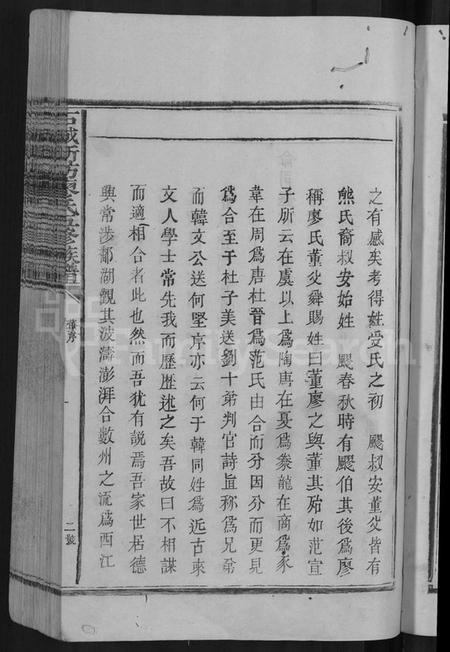 之有感矣考得姓受氏之初 颺叔安董父皆有
熊氏裔叔安始姓 颺春秋時有颺伯其後爲廖
稱廖氏董父舜賜姓曰董廖之與董其殆如范宣
子所云在虞以上爲陶唐在夏爲豢龍在商爲豕
韋在周爲唐杜晉爲范氏由合而分因分而更見
爲合至于杜子美送劉十弟判官詩旨稱爲兄弟
而韓文公送何堅序亦云何于韓同姓爲近古來
文人學士常先我而歷歷述之矣吾故曰不相謀
而適相合者此也然而吾猶有説焉吾家世居德
興常涉鄱湖觀其波濤澎湃合數州之流爲西江
石城 坊 氏 修族譜
序
二號
FamilySearch